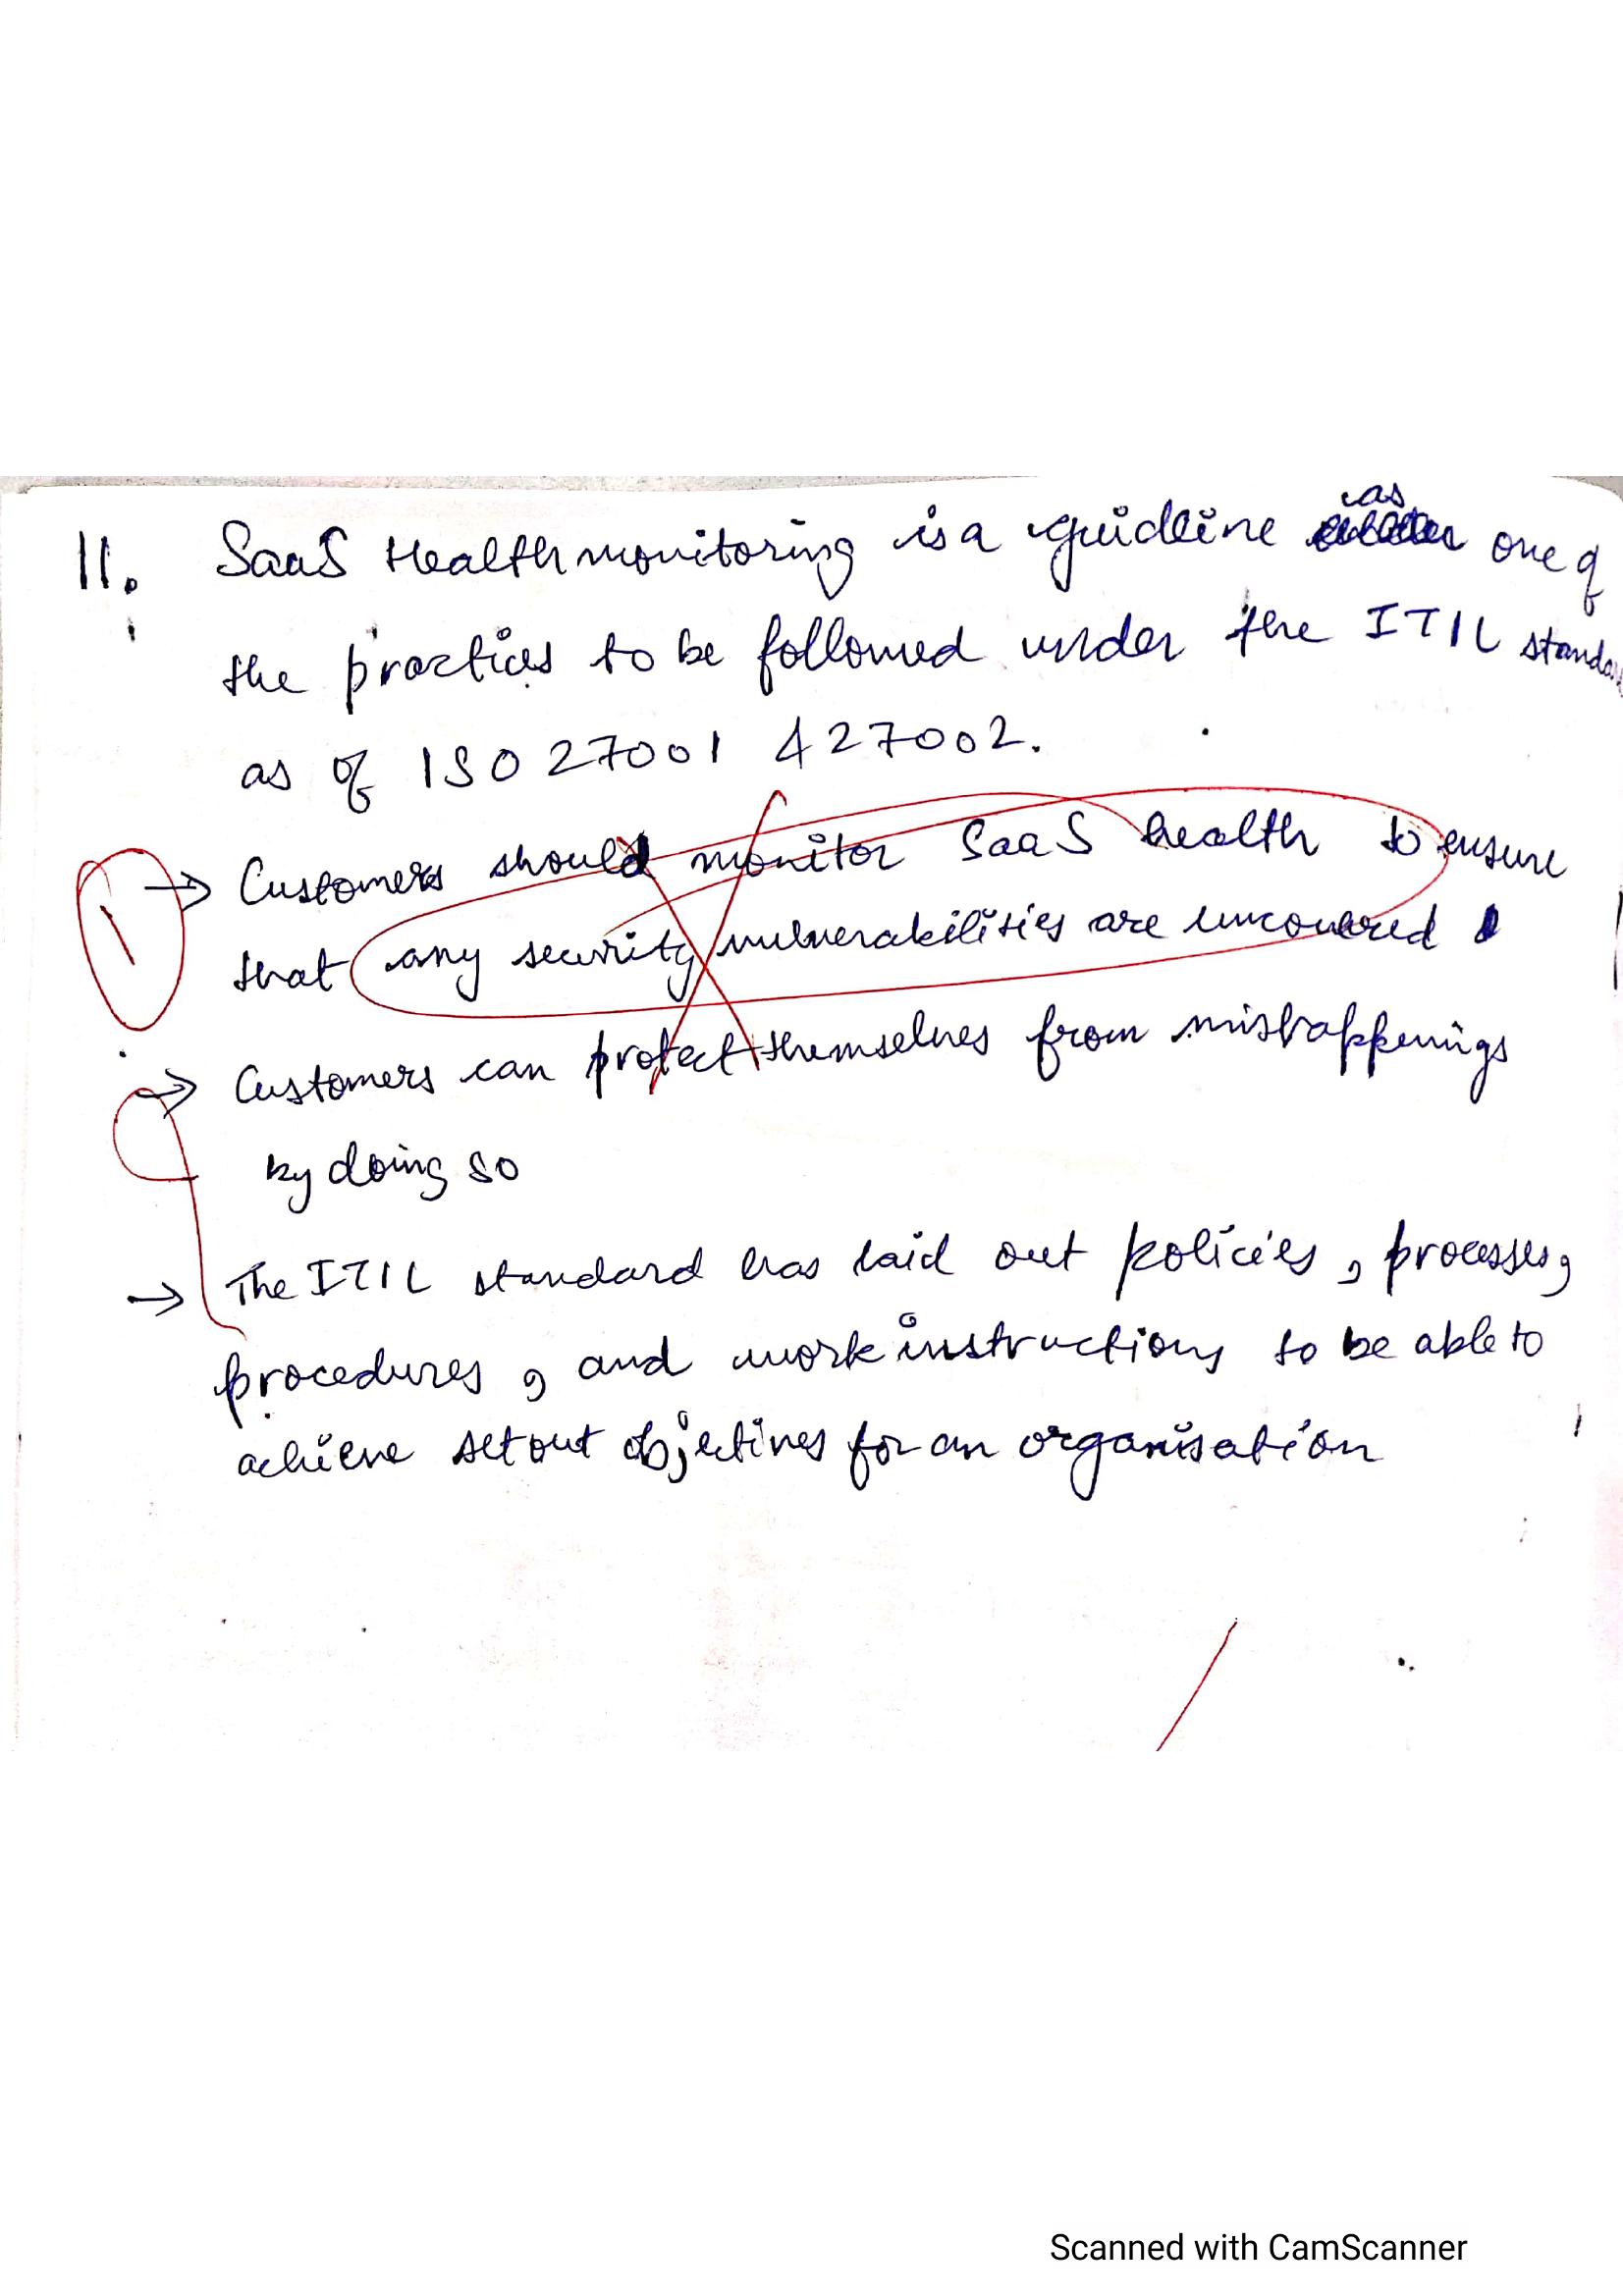 11. SaaS Health monitoring is a guidline as one of
the practices to be followed under the ITIL standa
as of ISO 27001 & 27002.
→ Customers should monitor SaaS health to ensure
that any security vulnerabilities are uncovered
→ Customers can protect themselves from mishappenings
by doing so
→ The ITIL standard has laid out policies, processes,
procedures, and work instructions to be able to
achieve set out objectives for an organisation
Scanned with CamScanner